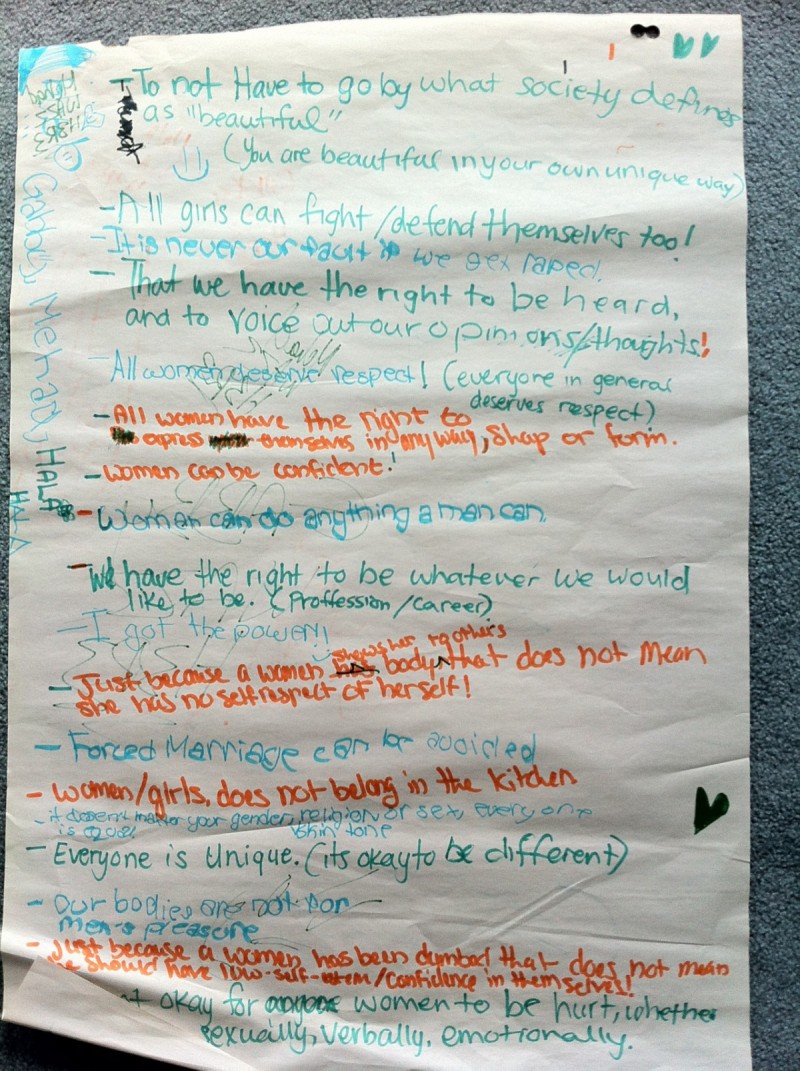 - To not Have to go by what society defines
as "beautiful"
(You are beautiful in your own unique way)
- All girls can fight/defend themselves too!
- It is never our fault if we get raped.
- That we have the right to be heard,
and to voice out our opinions/thoughts!
- All women deserve respect! (everyone in general
deserves respect)
- All women have the right to
express themselves in any way, Shap or form.
- women can be confident!
- Women can do anything a man can.
- We have the right to be whatever we would
like to be. (Proffession/career)
- I got the power!
- Just because a women shows her body to others that does not mean
she has no self respect of herself!
- Forced Marriage can be avoided
- women/girls, does not belong in the kitchen
- it doesn't matter your gender, religion or sex, every one
is equal skin tone
- Everyone is Unique. (its okay to be different)
- Our bodies are not for
men's pleasure
- Just because a women has been dumbed that does not mean
should have low-self-estem/confidence in themselves!
okay for women to be hurt, whether
sexually, verbally, emotionally.
Mehady, HALA
HALA